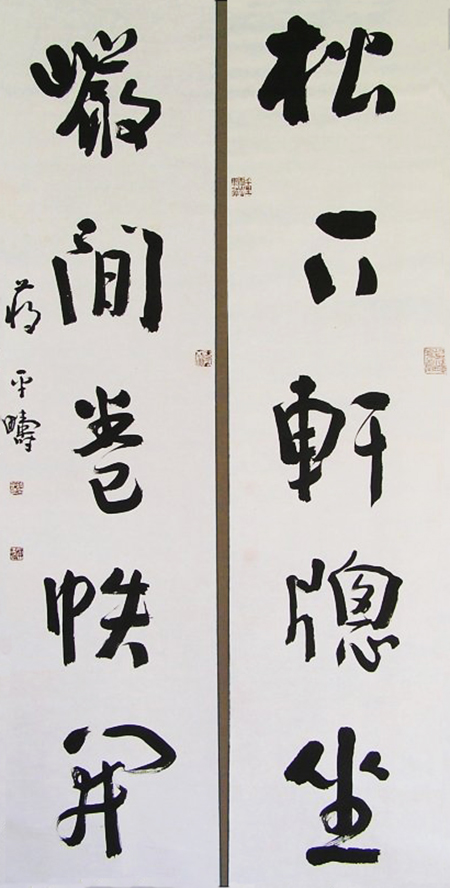 松下軒牕坐
巖間卷帙開
蔣平疇